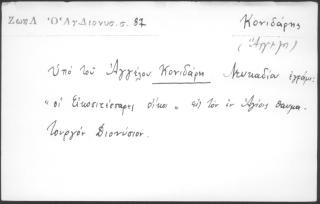 Ζωπλ Ὁ Ἁγ Διονυσ. σ. 87
Κονιδάρης
(Ἀγγελ)
Ὑπὸ τοῦ Ἀγγέλου Κονιδάρη Λευκαδίου ἐγράφ:
"οἱ Εἰκοσιτέσσαρες οἶκοι" εἰς τὸν ἐν Ἁγίοις θαυμα
τουργὸν Διονύσιον.